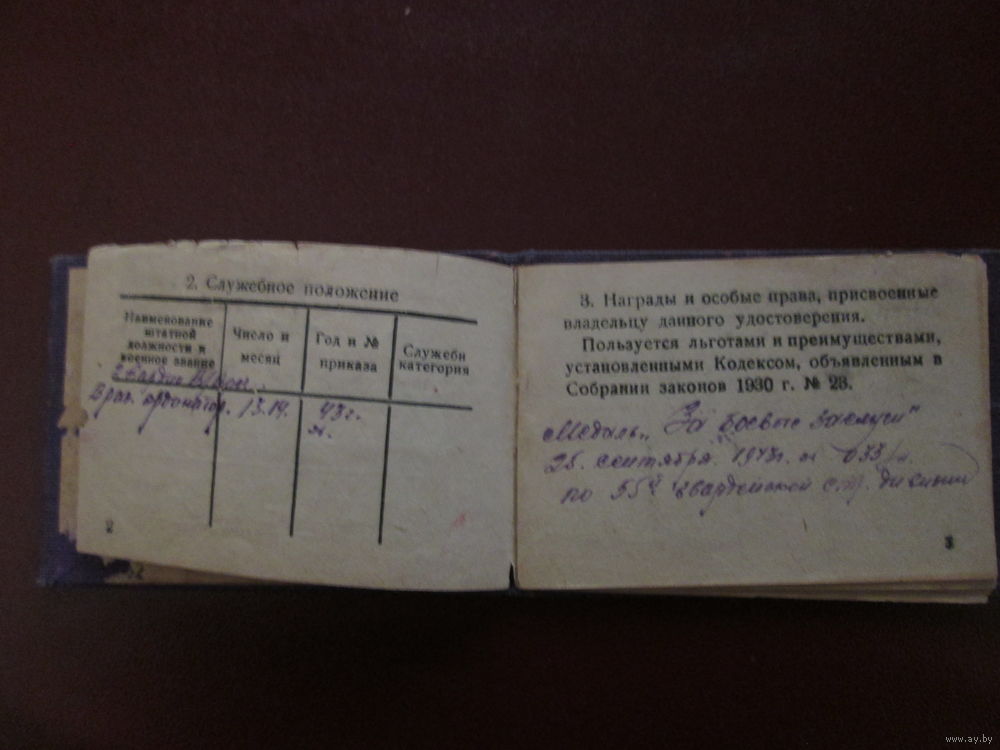 2. Служебное положение
Наименование
штатной
должности и
военное звание
Число и
месяц
Год и №
приказа
Служебн
категория
Гвардии
Врач ординатор.
43г.
№.
2
3. Награды и особые права, присвоенные
владельцу данного удостоверения.
Пользуется льготами и преимуществами,
установленными Кодексом, объявленным в
Собрании законов 1930 г. № 23.
Медаль „За боевые заслуги"
25. сентября. 1943г. № 033/н.
по 55й гвардейской стр. дивизии
3
www.ay.by